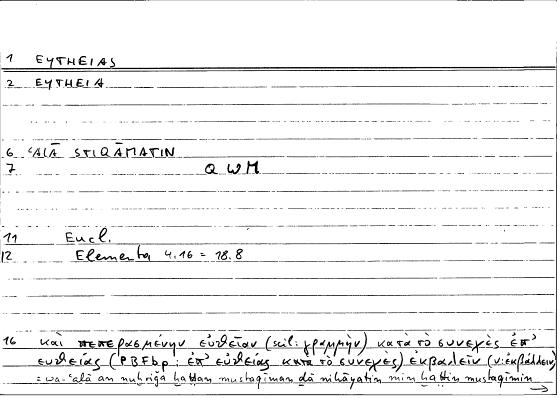 1 EYTHEIAS
2 EYTHEIA
6 ʿALĀ STIQĀMATIN
7 Q W M
11 Eucl.
12 Elementa 4.16 = 18.8
16 καὶ πεπερασμένην εὐθεῖαν (scil. γραμμὴν) κατὰ τὸ συνεχὲς ἐπ'
εὐθείας (PBFbp : ἐπ' εὐθείας κατὰ τὸ συνεχὲς) ἐκβαλεῖν (V: ἐκβάλλειν)
= wa-ʿalā an nuḫriǧa ḫaṭṭan mustaqīman ḏā nihāyatin min ḫaṭṭin mustaqīmin